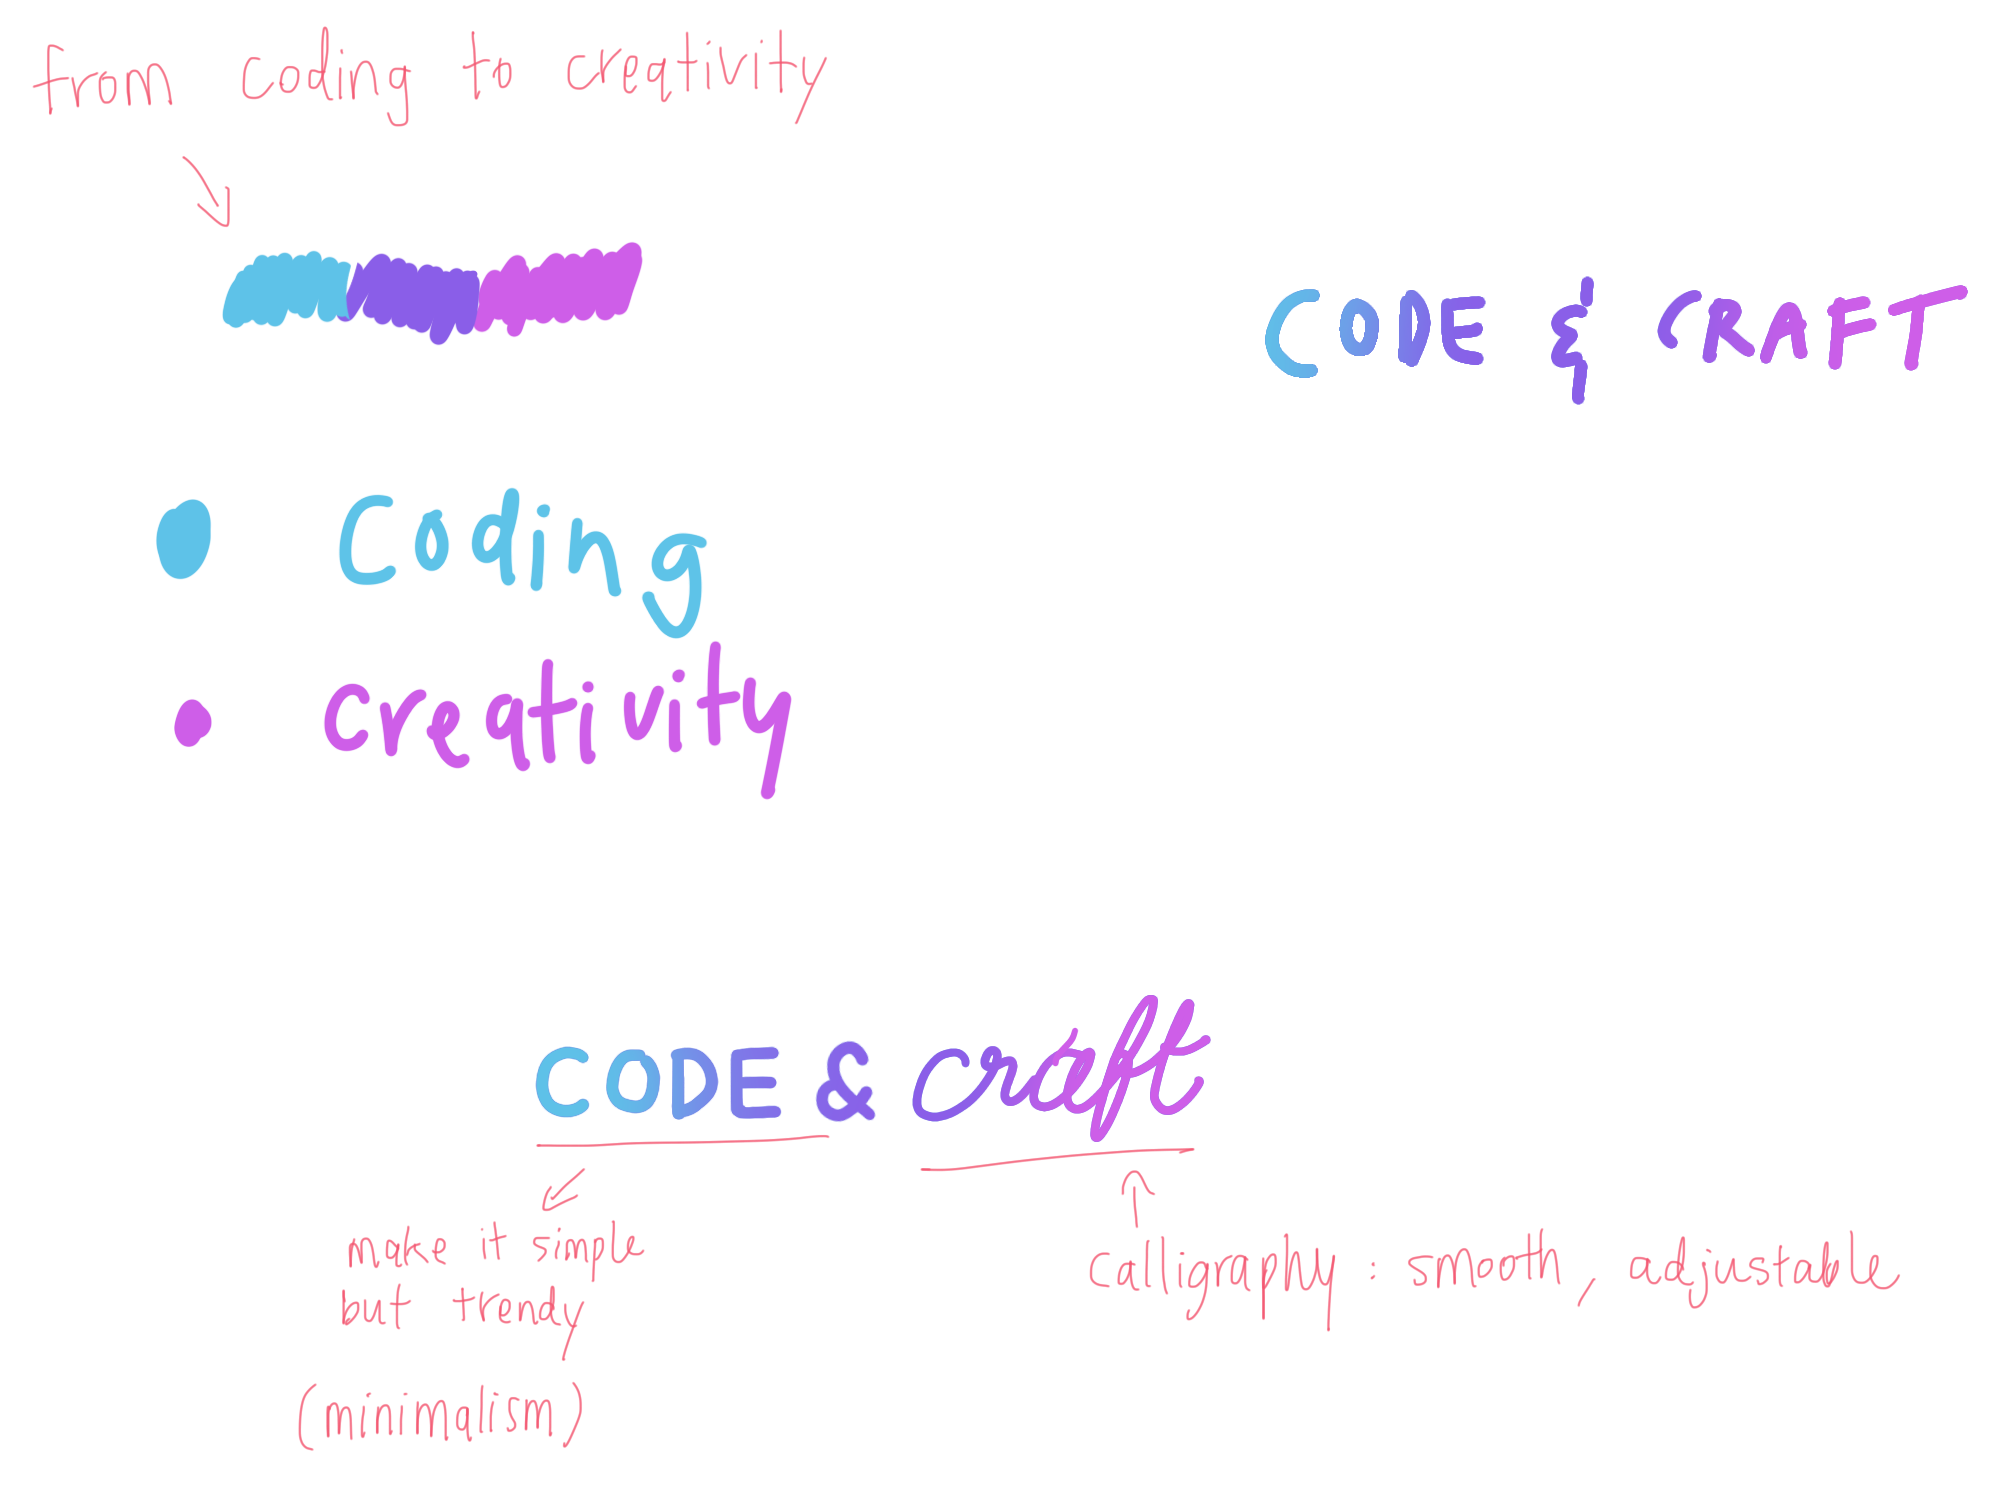 from coding to creativity
CODE & CRAFT
Coding
creativity
CODE & craft
make it simple
but trendy
(minimalism)
calligraphy : smooth, adjustable